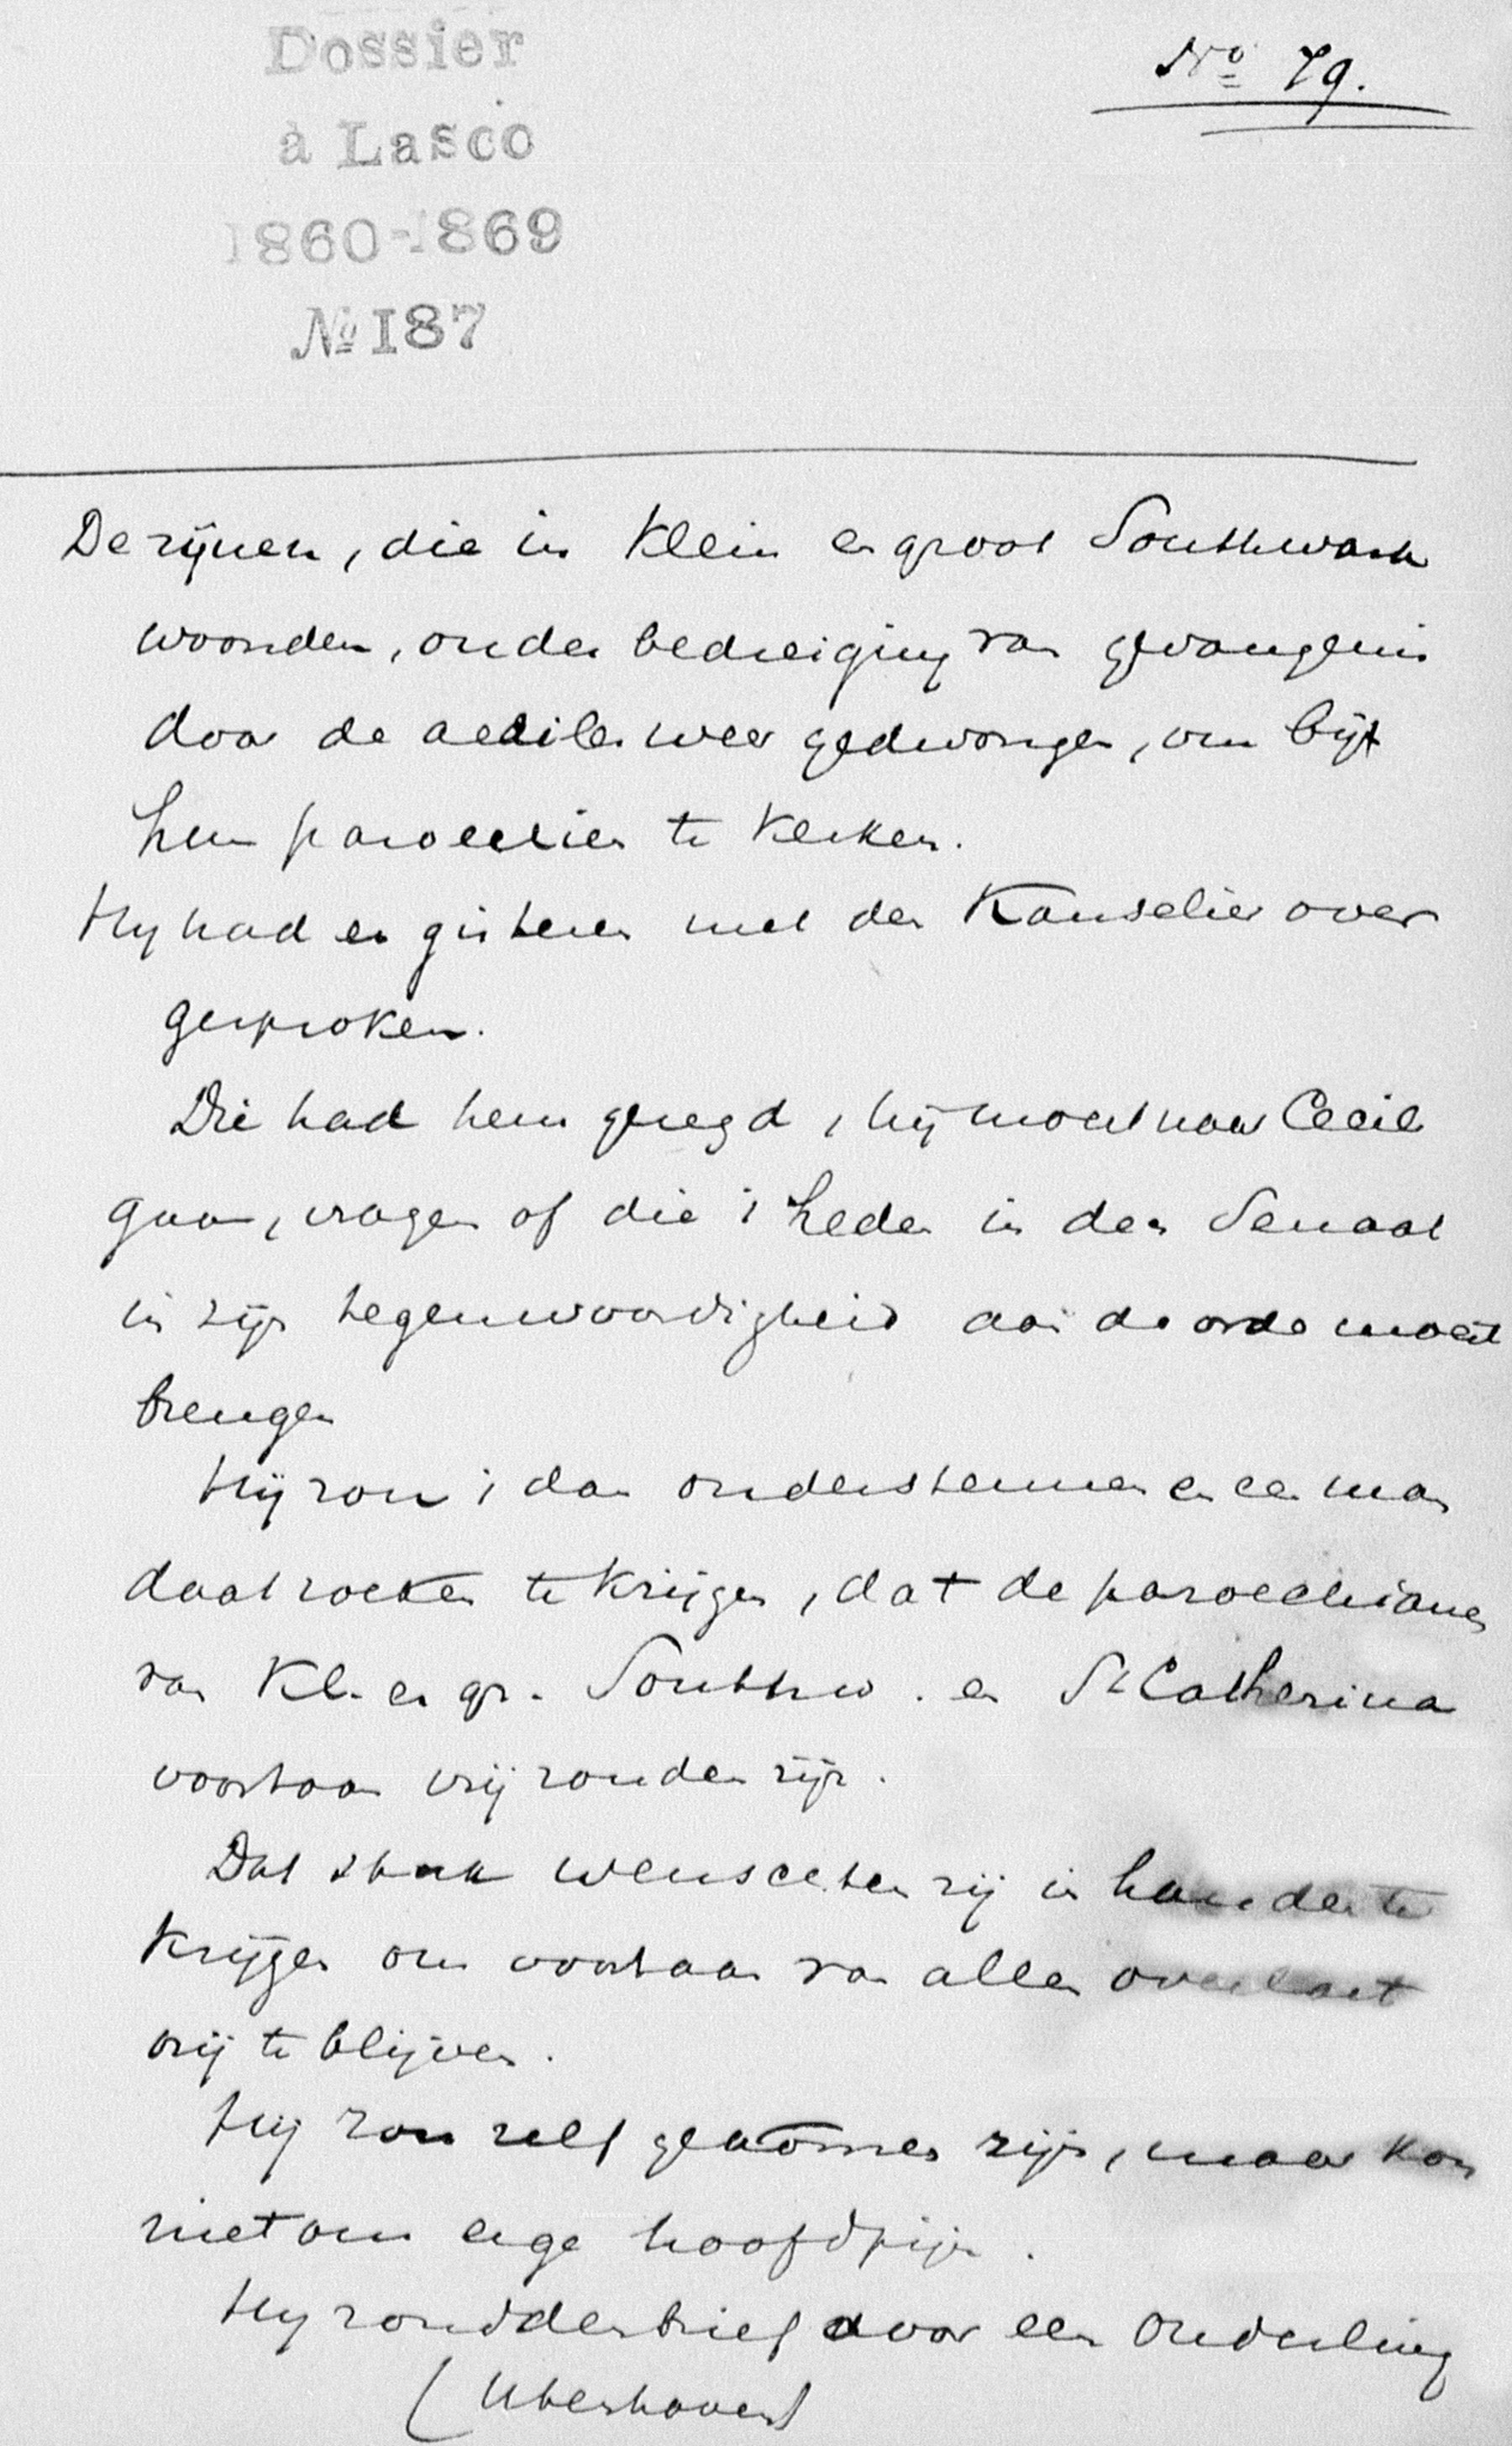 Dossier
à Lasco
1860-1869
№ 187
No 79.
De zijnen, die in Klein en groot Southwark
woonden, onder bedreiging van gevangenis
door de aedilen weer gedwongen, om bij
hun paroechien te kerken.
Hij had er gisteren met den Kanselier over
gesproken.
Die had hem gezegd, hij moest naar Cecil
gaan, vragen of die 't heden in den Senaat
in zijn tegenwoordigheid aan de orde moest
brengen
Hij zou 't dan ondersteunen en een man
daat zoeken te krijgen, dat de paroechianen
van Kl. en gr. Southw. en St Catherina
voortaan vrij zouden zijn.
Dat stuk wenschten zij in handen te
krijgen om voortaan van allen overlast
vrij te blijven.
Hij zou zelf gekomen zijn, maar kon
niet om erge hoofdpijn.
Hij zondt den brief door een Ouderling
(Utenhoven)